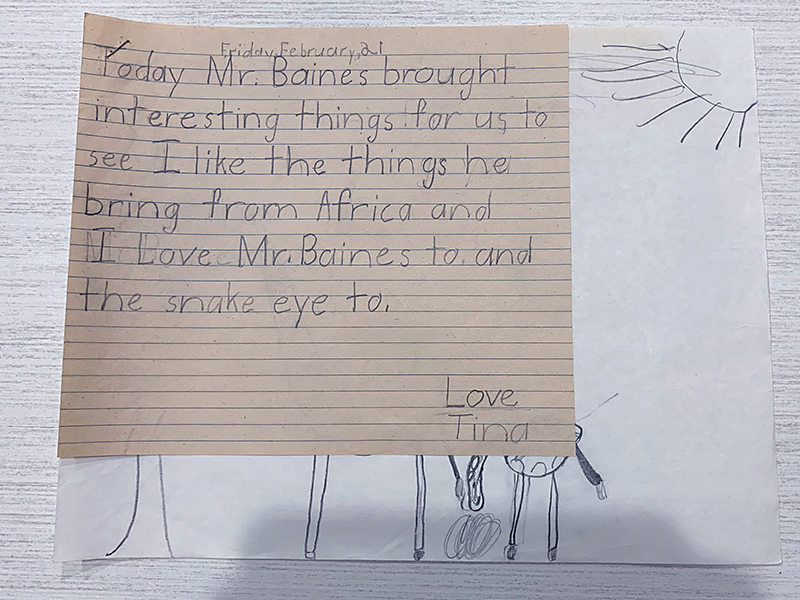 Friday, February, 21
Today Mr. Baines brought
interesting things for us to
see I like the things he
bring from Africa and
I Love Mr. Baines to. and
the snake eye to.
Love
Tina